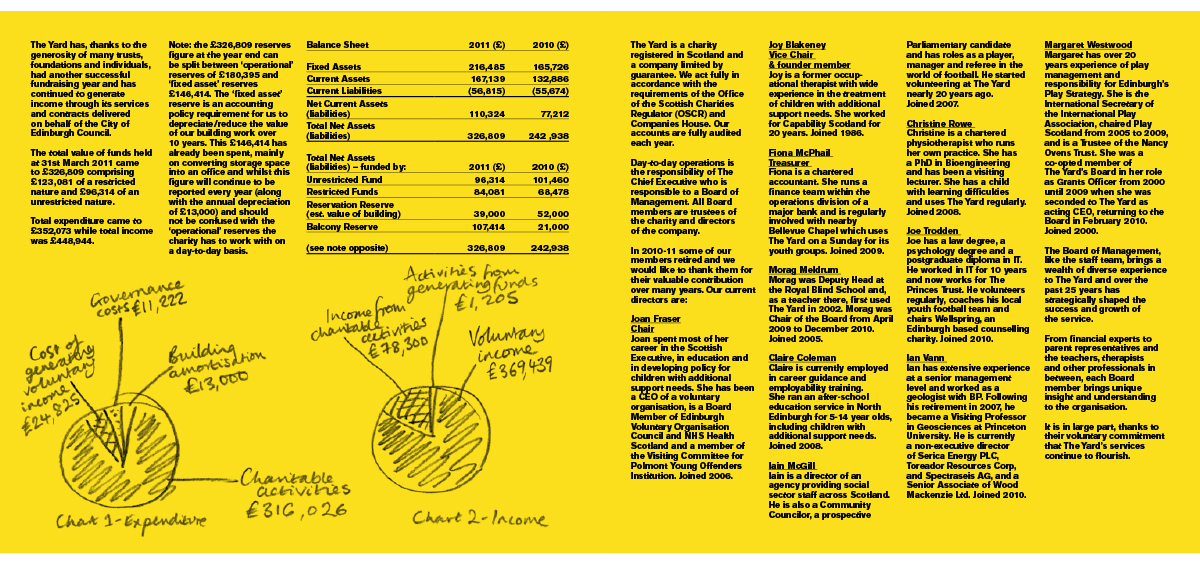 The Yard has, thanks to the
generosity of many trusts,
foundations and individuals,
had another successful
fundraising year and has
continued to generate
income through its services
and contracts delivered
on behalf of the City of
Edinburgh Council.
The total value of funds held
at 31st March 2011 came
to £326,809 comprising
£123,081 of a restricted
nature and £96,314 of an
unrestricted nature.
Total expenditure came to
£352,073 while total income
was £448,944.
Note: the £326,809 reserves
figure at the year end can
be split between 'operational'
reserves of £180,395 and
'fixed asset' reserves
£146,414. The 'fixed asset'
reserve is an accounting
policy requirement for us to
depreciate/reduce the value
of our building work over
10 years. This £146,414 has
already been spent, mainly
on converting storage space
into an office and whilst this
figure will continue to be
reported every year (along
with the annual depreciation
of £13,000) and should
not be confused with the
'operational' reserves the
charity has to work with on
a day-to-day basis.
Balance Sheet 2011 (£) 2010 (£)
Fixed Assets 216,485 165,726
Current Assets 167,139 132,886
Current Liabilities (56,815) (55,674)
Net Current Assets
(liabilities) 110,324 77,212
Total Net Assets
(liabilities) 326,809 242 ,938
Total Net Assets
(liabilities) – funded by: 2011 (£) 2010 (£)
Unrestricted Fund 96,314 101,460
Restricted Funds 84,081 68,478
Reservation Reserve
(est. value of building) 39,000 52,000
Balcony Reserve 107,414 21,000
(see note opposite) 326,809 242,938
Governance
costs £11,222
Cost of
generating
voluntary
income
£24,825
Building
amortisation
£13,000
Charitable
activities
£316,026
Chart 1-Expenditure
Activities from
generating funds
£1,205
Income from
charitable
activities
£78,300
Voluntary
income
£369,439
Chart 2-Income
The Yard is a charity
registered in Scotland and
a company limited by
guarantee. We act fully in
accordance with the
requirements of the Office
of the Scottish Charities
Regulator (OSCR) and
Companies House. Our
accounts are fully audited
each year.
Day-to-day operations is
the responsibility of The
Chief Executive who is
responsible to a Board of
Management. All Board
members are trustees of
the charity and directors
of the company.
In 2010-11 some of our
members retired and we
would like to thank them for
their valuable contribution
over many years. Our current
directors are:
Joan Fraser
Chair
Joan spent most of her
career in the Scottish
Executive, in education and
in developing policy for
children with additional
support needs. She has been
a CEO of a voluntary
organisation, is a Board
Member of Edinburgh
Voluntary Organisation
Council and NHS Health
Scotland and a member of
the Visiting Committee for
Polmont Young Offenders
Institution. Joined 2006.
Joy Blakeney
Vice Chair
& founder member
Joy is a former occup-
ational therapist with wide
experience in the treatment
of children with additional
support needs. She worked
for Capability Scotland for
20 years. Joined 1986.
Fiona McPhail
Treasurer
Fiona is a chartered
accountant. She runs a
finance team within the
operations division of a
major bank and is regularly
involved with nearby
Bellevue Chapel which uses
The Yard on a Sunday for its
youth groups. Joined 2009.
Morag Meldrum
Morag was Deputy Head at
the Royal Blind School and,
as a teacher there, first used
The Yard in 2002. Morag was
Chair of the Board from April
2009 to December 2010.
Joined 2005.
Claire Coleman
Claire is currently employed
in career guidance and
employability training.
She ran an after-school
education service in North
Edinburgh for 5-14 year olds,
including children with
additional support needs.
Joined 2008.
Iain McGill
Iain is a director of an
agency providing social
sector staff across Scotland.
He is also a Community
Councilor, a prospective
Parliamentary candidate
and has roles as a player,
manager and referee in the
world of football. He started
volunteering at The Yard
nearly 20 years ago.
Joined 2007.
Christine Rowe
Christine is a chartered
physiotherapist who runs
her own practice. She has
a PhD in Bioengineering
and has been a visiting
lecturer. She has a child
with learning difficulties
and uses The Yard regularly.
Joined 2008.
Joe Trodden
Joe has a law degree, a
psychology degree and a
postgraduate diploma in IT.
He worked in IT for 10 years
and now works for The
Princes Trust. He volunteers
regularly, coaches his local
youth football team and
chairs Wellspring, an
Edinburgh based counselling
charity. Joined 2010.
Ian Vann
Ian has extensive experience
at a senior management
level and worked as a
geologist with BP. Following
his retirement in 2007, he
became a Visiting Professor
in Geosciences at Princeton
University. He is currently
a non-executive director
of Serica Energy PLC,
Toreador Resources Corp,
and Spectraseis AG, and a
Senior Associate of Wood
Mackenzie Ltd. Joined 2010.
Margaret Westwood
Margaret has over 20
years experience of play
management and
responsibility for Edinburgh's
Play Strategy. She is the
International Secretary of
the International Play
Association, chaired Play
Scotland from 2005 to 2009,
and is a Trustee of the Nancy
Ovens Trust. She was a
co-opted member of
The Yard's Board in her role
as Grants Officer from 2000
until 2009 when she was
seconded to The Yard as
acting CEO, returning to the
Board in February 2010.
Joined 2000.
The Board of Management,
like the staff team, brings a
wealth of diverse experience
to The Yard and over the
past 25 years has
strategically shaped the
success and growth of
the service.
From financial experts to
parent representatives and
the teachers, therapists
and other professionals in
between, each Board
member brings unique
insight and understanding
to the organisation.
It is in large part, thanks to
their voluntary commitment
that The Yard's services
continue to flourish.